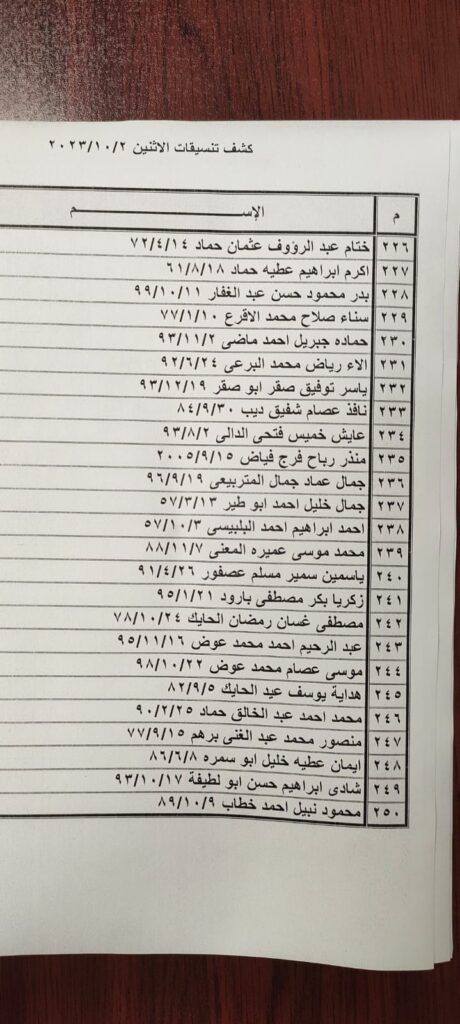 كشف تنسيقات الاثنين ٢٠٢٣/١٠/٢
م الإســــــــــــم
٢٢٦ ختام عبد الرؤوف عثمان حماد ٧٢/٤/١٤
٢٢٧ اكرم ابراهيم عطيه حماد ٦١/٨/١٨
٢٢٨ بدر محمود حسن عبد الغفار ٩٩/١٠/١١
٢٢٩ سناء صلاح محمد الاقرع ٧٧/١/١٠
٢٣٠ حماده جبريل احمد ماضى ٩٣/١١/٢
٢٣١ الاء رياض محمد البرعى ٩٢/٦/٢٤
٢٣٢ ياسر توفيق صقر ابو صقر ٩٣/١٢/١٩
٢٣٣ نافذ عصام شفيق ديب ٨٤/٩/٣٠
٢٣٤ عايش خميس فتحى الدالى ٩٣/٨/٢
٢٣٥ منذر رباح فرج فياض ٢٠٠٥/٩/١٥
٢٣٦ جمال عماد جمال المتربيعى ٩٦/٩/١٩
٢٣٧ جمال خليل احمد ابو طير ٥٧/٣/١٣
٢٣٨ احمد ابراهيم احمد البلبيسى ٥٧/١٠/٣
٢٣٩ محمد موسى عميره المغنى ٨٨/١١/٧
٢٤٠ ياسمين سمير مسلم عصفور ٩١/٤/٢٦
٢٤١ زكريا بكر مصطفى بارود ٩٥/١/٢١
٢٤٢ مصطفى غسان رمضان الحايك ٧٨/١٠/٢٤
٢٤٣ عبد الرحيم احمد محمد عوض ٩٥/١١/١٦
٢٤٤ موسى عصام محمد عوض ٩٨/١٠/٢٢
٢٤٥ هداية يوسف عيد الحايك ٨٢/٩/٥
٢٤٦ محمد احمد عبد الخالق حماد ٩٠/٢/٢٥
٢٤٧ منصور محمد عبد الغنى برهم ٧٧/٩/١٥
٢٤٨ ايمان عطيه خليل ابو سمره ٨٦/٦/٨
٢٤٩ شادى ابراهيم حسن ابو لطيفة ٩٣/١٠/١٧
٢٥٠ محمود نبيل احمد خطاب ٨٩/١٠/٩